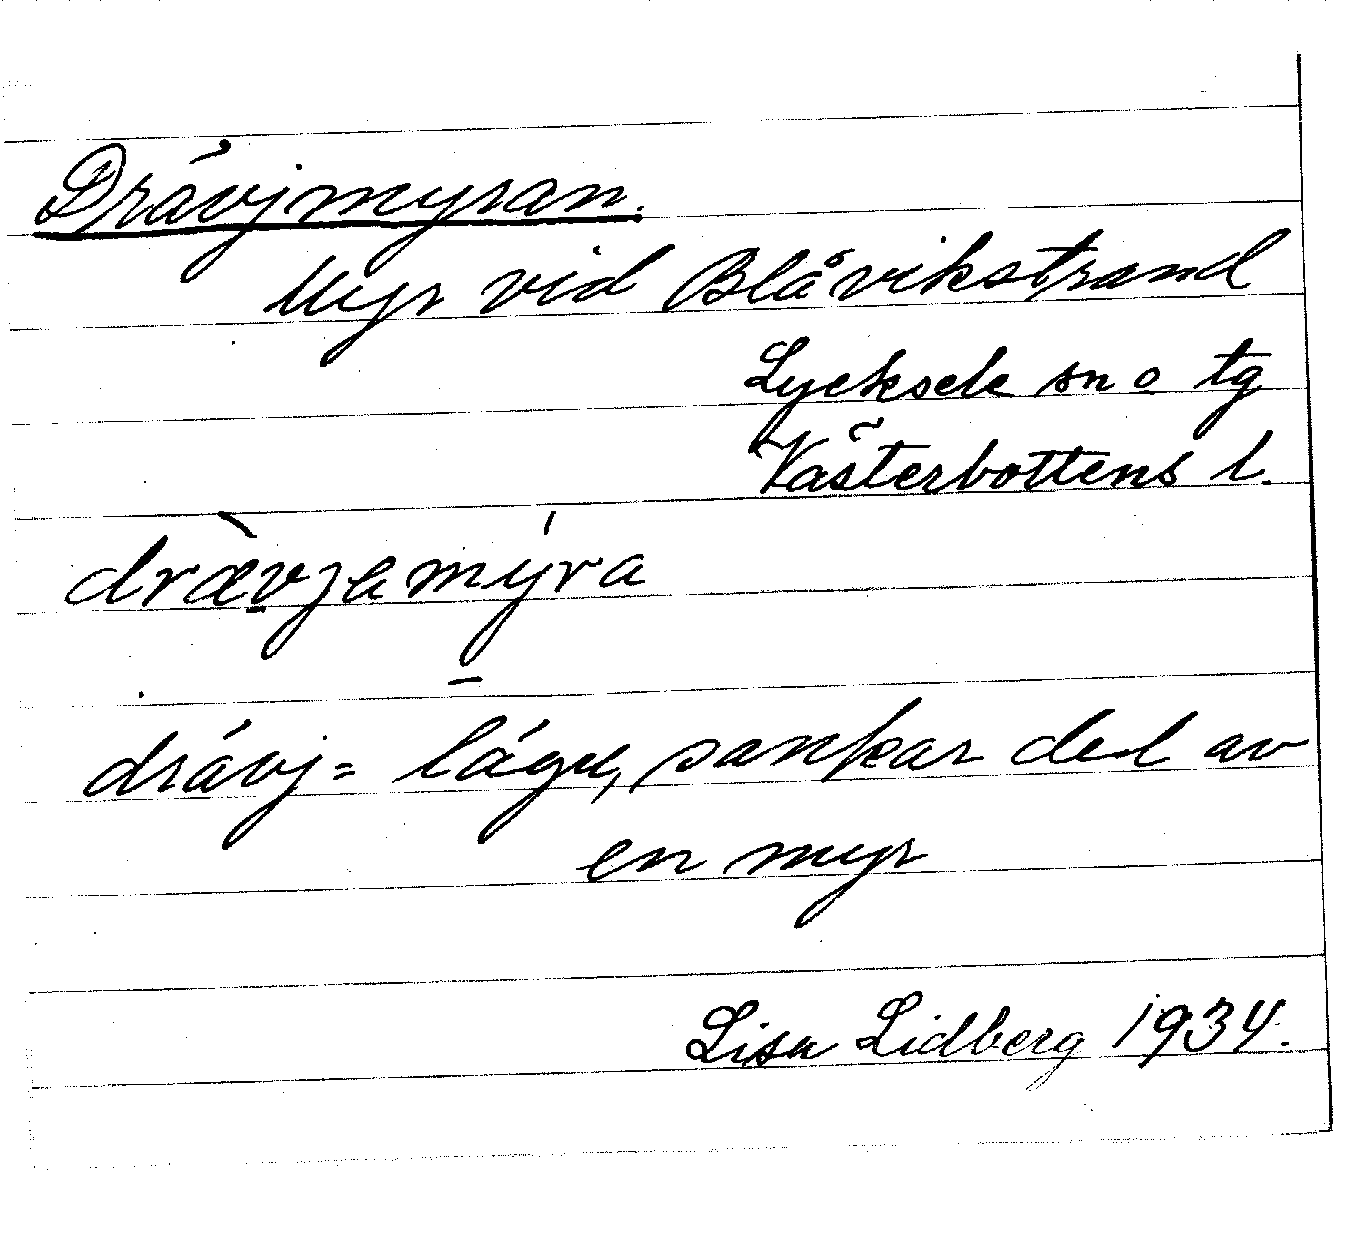 Drävjmyran.
Myr vid Blåvikstrand
Lycksele sn o tg
Västerbottens l.
drævjamyra
drävj = lägre, sankar del av
en myr
Lisa Lidberg 1934.